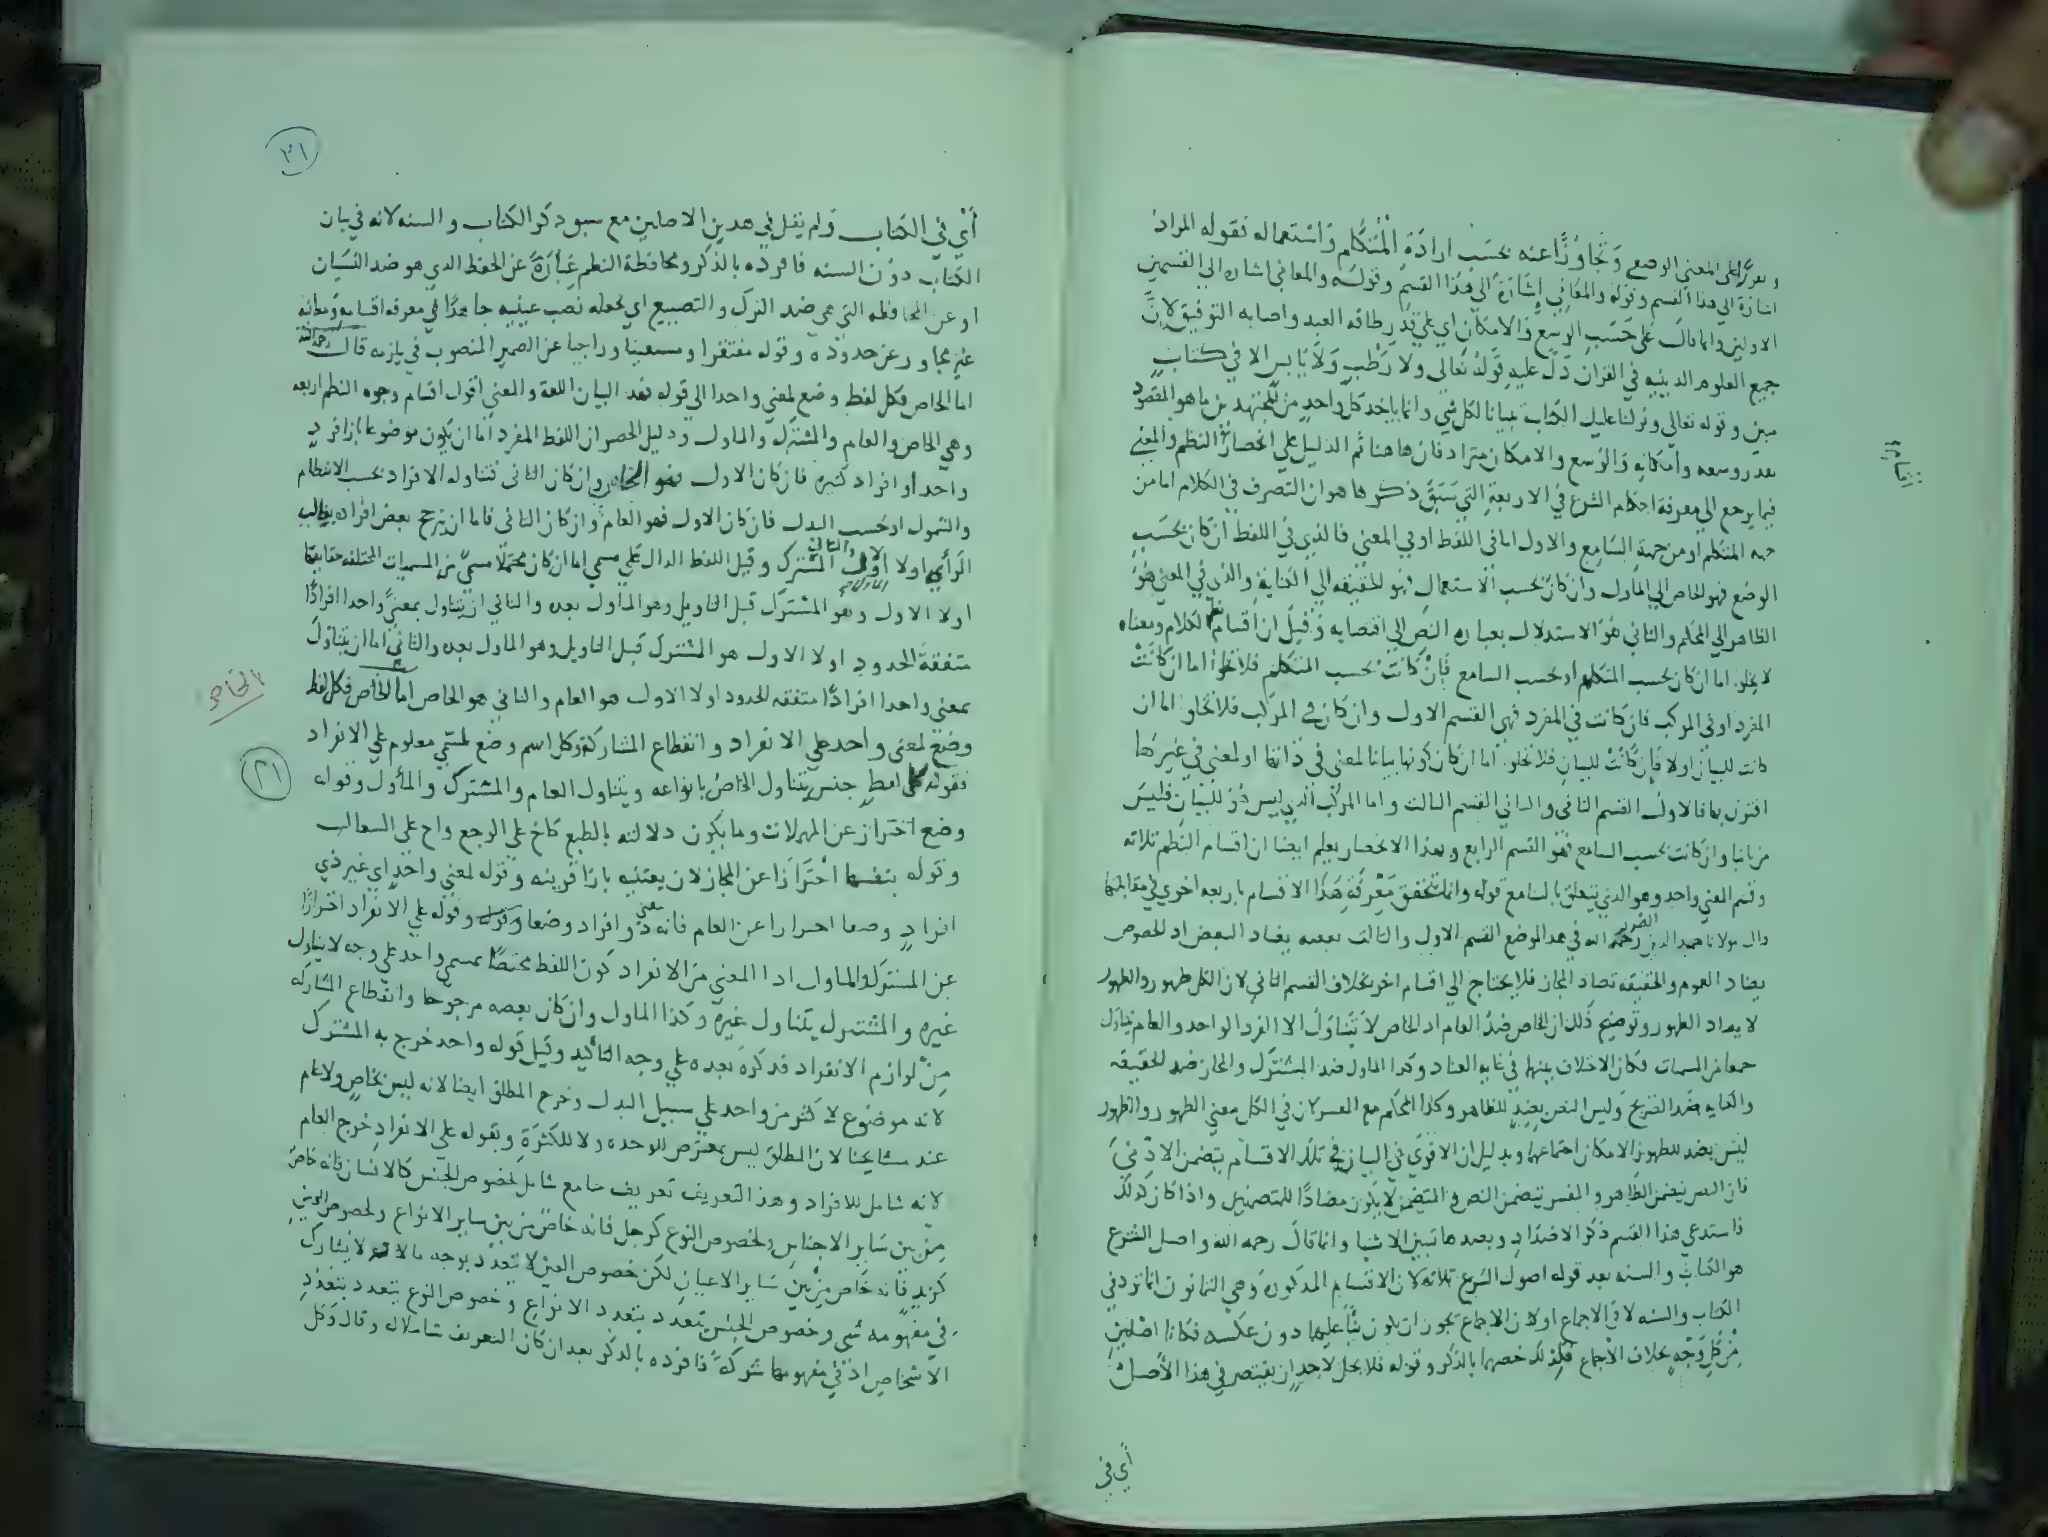 وتقريرا على المعنى الوضعي وتجاوزا عنه بحسب ارادة المتكلم واستعماله فقوله المراد
اشارة الى هذا القسم وقوله والمعاني اشارة الى هذا القسم وقوله والمعاني اشاره الى القسمين
الاولين وانما قال على حسب الوسع والامكان اي على قدر طاقه العبد واصابه التوفيق لان
جميع العلوم الدينيه في القران دل عليه قوله تعالى ولا رطب ولا يابس الا في كتاب
مبين وقوله تعالى ونزلنا عليك الكتاب تبيانا لكل شي وانما ياخذ كل واحد من المجتهدين ما هو المقصود
بقدر وسعه وامكانه والوسع والامكان مترادفان هاهنا ثم الدليل على انحصار النظم والمعنى
فيما يرجع الى معرفة احكام الشرع في الاربعة التي سبق ذكرها هو ان التصرف في الكلام اما من
جهه المتكلم او من جهة السامع والاول اما في اللفظ او في المعنى فالذي في اللفظ ان كان بحسب
الوضع فهو الخاص الى الماول وان كان بحسب الاستعمال فهو الحقيقه الى الكناية والذي في المعنى هو
الظاهر الى المحكم والثاني هو الاستدلال بعباره النص الى اقتضايه وقيل ان اقسام نظم الكلام ومعناه
لا يخلو اما ان كان بحسب المتكلم او بحسب السامع فان كانت بحسب المتكلم فلا تخلوا اما ان كانت
المفرد او في المركب فان كانت في المفرد فهي القسم الاول وان كان في المركب فلا تخلو اما ان
كانت للبيان اولا فان كانت للبيان فلا تخلو اما ان كان كونها بيانا لمعنى في ذاتها او لمعنى في غيرها
اقترن بها فالاول القسم الثاني والثاني القسم الثالث واما المركب الذي ليس للبيان فليس
من بابنا وان كانت بحسب السامع فهو القسم الرابع وبهذا الانحصار يعلم ايضا ان اقسام النظم ثلاثه
وقسم المعنى واحد وهو الذي يتعلق بالسامع قوله وانما تتحقق معرفة هذا الاقسام باربعه اخرى في مقابلتها
قال مولانا حميد الدين الضرير رحمه الله في هذا الموضع القسم الاول والثالث بعضه يضاد البعض اذ الخصوص
يضاد العموم والحقيقه تضاد المجاز فلا يحتاج الى اقسام اخر بخلاف القسم الثاني لان الكل ظهور والظهور
لا يضاد الظهور وتوضيح ذلك ان الخاص ضد العام اذ الخاص لا تتناول الا الفرد الواحد والعام يتناول
جمعا من المسميات فكان الاختلاف بينهما في غايه العناد وكذا الماول ضد المشترك والمجاز ضد للحقيقه
والكنايه ضد الصريح وليس النص بضد للظاهر وكذا المحكم مع المفسر لان في الكل معنى الظهور والظهور
ليس بضد للظهور لامكان اجتماعهما وبدليل ان الاقوى في البيان في تلك الاقسام يتضمن الادنى
فان النص يتضمن الظاهر والمفسر يتضمن النص والمتضمن لا يكون مضادا للمتضمن واذا كان كذلك
فاستدعى هذا القسم ذكر الاضداد وبضدها تتبين الاشيا وانما قال رحمه الله واصل الشرع
هو الكتاب والسنه بعد قوله اصول الشرع ثلاثه لان الاقسام المذكورة وهي الثمانون انما توجد في
الكتاب والسنه لا في الاجماع او لان الاجماع يجوز ان يكون بناء عليهما دون عكسه فكانا اصلين
من كل وجه بخلاف الاجماع فلذلك خصهما بالذكر وقوله فلا يحل لاحد ان يقتصر في هذا الاصل
أي في
٢١
أي في الكتاب ولم يقل في هذين الاصلين مع سبق ذكر الكتاب والسنه لانه في بيان
الكتاب دون السنه فافرده بالذكر ومحافظة النظم عبارة عن الحفظ الذي هو ضد النسيان
او عن المحافظه التي هي ضد الترك والتضييع اي يجعله نصب عينيه جامدا في معرفه اقسامه ومعانيه
غير مجاوز عن حدوده وقوله مفتقرا ومستعينا وراجيا عن الضمير المنصوب في يلزمه قال رحمه الله
اما الخاص فكل لفظ وضع لمعنى واحدا الى قوله بعد البيان اللغة والمعنى اقول اقسام وجوه النظم اربعه
وهي الخاص والعام والمشترك والماول ودليل الحصر ان اللفظ المفرد اما ان يكون موضوعا بازا فرد
واحد او افراد كثيره فان كان الاول فهو الخاص وان كان الثاني فتناوله الافراد بحسب الانتظام
والشمول او بحسب البدل فان كان الاول فهو العام وان كان الثاني فاما ان يترجح بعض افراده بغالب
الرأي اولا الاول الماول والثاني المشترك وقيل اللفظ الدال على مسمى اما ان كان محتملا مسمى من المسميات المختلفه حقايقها
اولا الاول وهو المشترك قبل التاويل وهو المأول بعده والثاني ان يتناول بمعنى واحدا افرادا
متفقة الحدود اولا الاول هو المشترك قبل التاويل وهو الماول بعده والثاني اما ان يتناول
بمعنى واحدا افرادا متفقه الحدود اولا الاول هو العام والثاني هو الخاص اما الخاص فكل لفظ
الخاص
وضع لمعنى واحد على الانفراد وانقطاع المشاركة وكل اسم وضع لمسمى معلوم على الانفراد
٢١
فقوله كل لفظ جنس يتناول الخاص بانواعه ويتناول العام والمشترك والمأول وقوله
وضع احتراز عن المهملات وما يكون دلالته بالطبع كاخ على الوجع واح على السعال
وقوله بنفسها احترازا عن المجاز لان يعتنيه بازا قرينه وقوله لمعنى واحد اي غير ذي
افراد وضعا احترازا عن العام فانه معنى ذو افراد وضعا وقوله وقوله على الانفراد احترازا
عن المشترك والماول اذا المعنى من الانفراد كون اللفظ مختصا بمسمى واحد على وجه لا يتناول
غيره والمشترك يتناول غيره وكذا الماول وان كان بعضه مرجوحا وانقطاع المشاركه
من لوازم الانفراد فذكره بعده على وجه التأكيد وقيل قوله واحد خرج به المشترك
لانه موضوع لاكثر من واحد على سبيل البدل وخرج المطلق ايضا لانه ليس بخاص ولا عام
عند مشايخنا لان المطلق ليس بمعترض للوحده ولا للكثرة وبقوله على الانفراد خرج العام
لانه شامل للافراد وهذ التعريف تعريف جامع شامل لخصوص الجنس كالانسان فانه خاص
من بين ساير الاجناس ولخصوص النوع كرجل فانه خاص من بين ساير الانواع ولخصوص العين
كزيد فانه خاص من بين ساير الاعيان لكن خصوص العين لا يتعدد بوجه ما لانه لا يشارك
في مفهومه شي وخصوص الجنس يتعدد بتعدد الانواع وخصوص النوع يتعدد بتعدد
الاشخاص اذ في مفهومهما شركة فافرده بالذكر بعد ان كان التعريف شاملا له وقال وكل